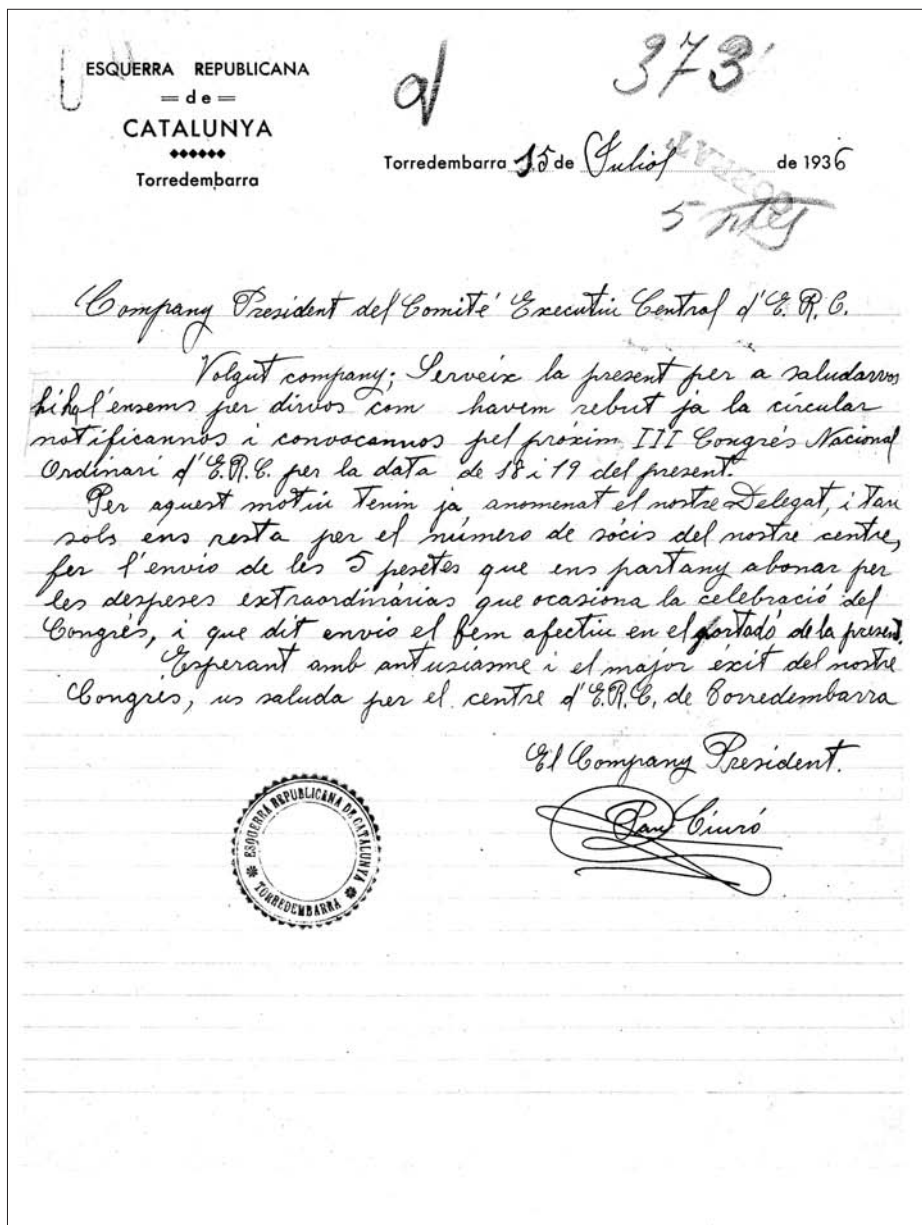 ESQUERRA REPUBLICANA
= de =
CATALUNYA
Torredembarra
373
Torredembarra 15 de Juliol de 1936
5 ptes
Company President del Comité Executiu Central d'E.R.C.
Volgut company; Serveix la present per a saludarvos
l'ensems per dirvos com havem rebut ja la circular
notificannos i convocannos pel próxim III Congrés Nacional
Ordinari d'E.R.C. per la data de 18 i 19 del present.
Per aquest motiu tenin ja anomenat el nostre Delegat, i tan
sols ens resta per el número de sócis del nostre centre,
fer l'envio de les 5 pesetes que ens partany abonar per
les despeses extraordinárias que ocasiona la celebració del
Congrés, i que dit envio el fem afectiu en el portadó de la present.
Esperant amb antusiásme i el major éxit del nostre
Congrés, us saluda per el centre d'E.R.C. de Torredembarra
El Company President.
Pau Ciuró
ESQUERRA REPUBLICANA DE CATALUNYA
* TORREDEMBARRA *